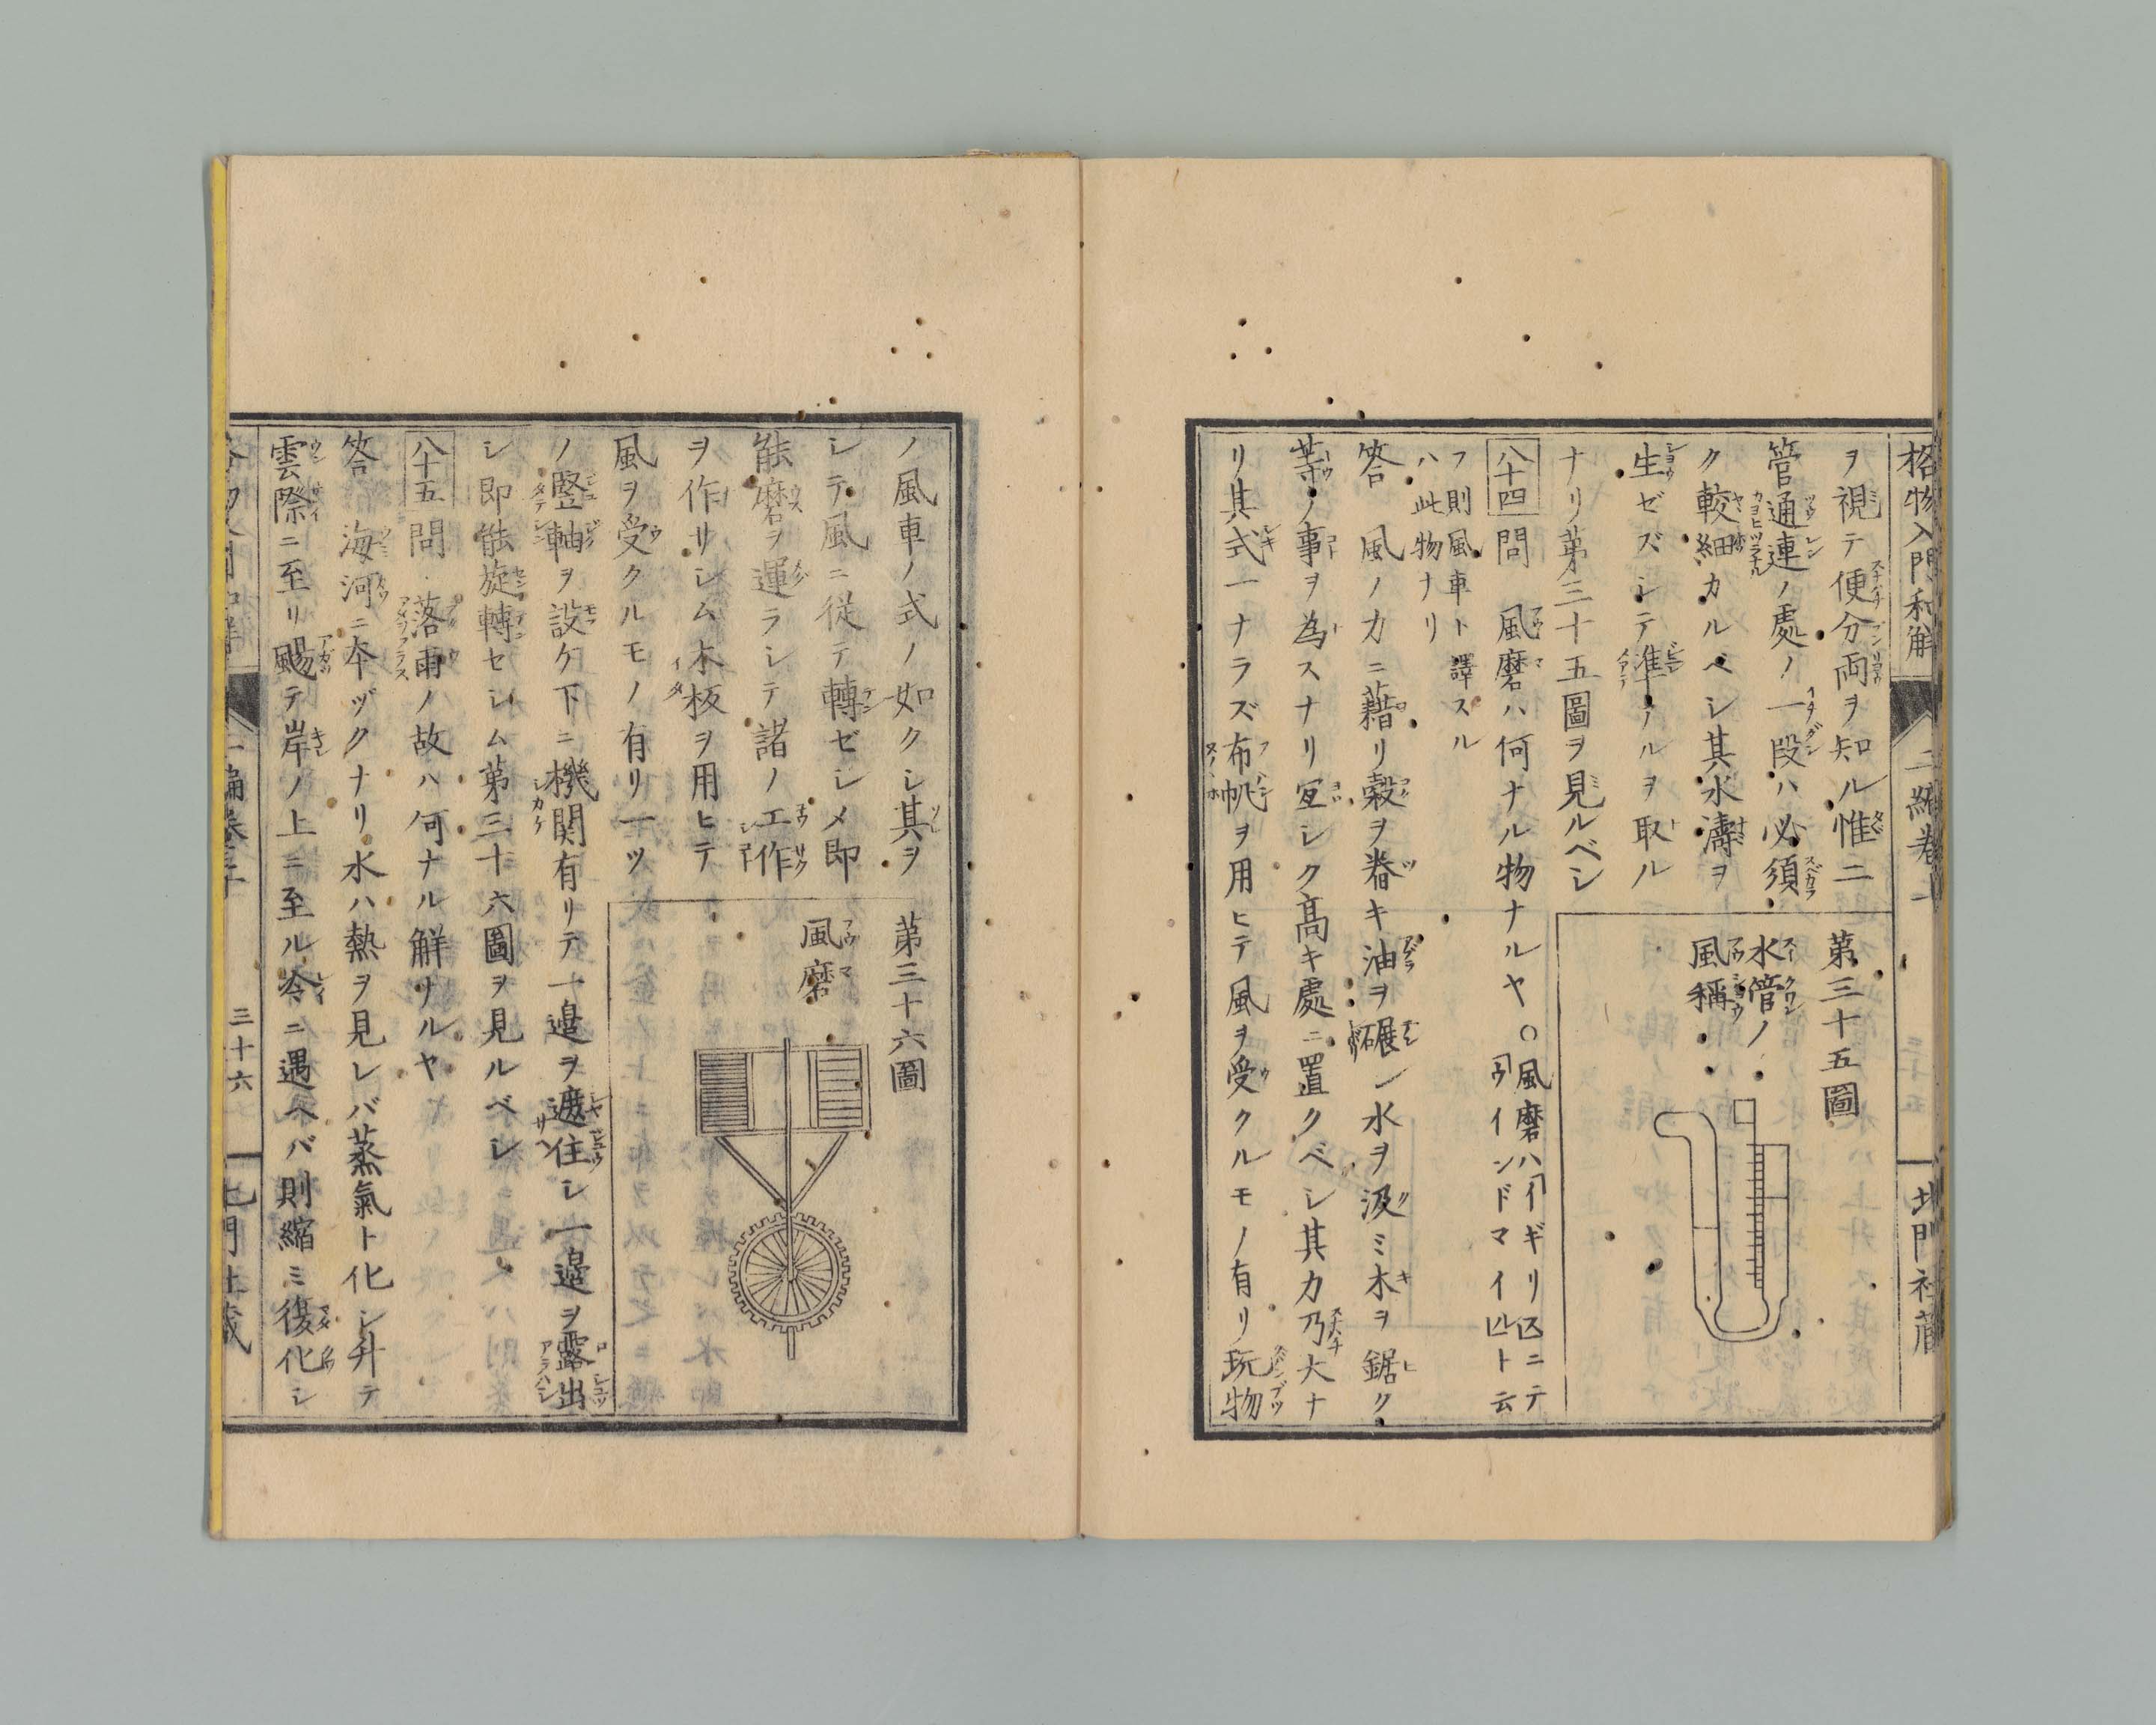 格物入門和解
二編卷
北門社蔵
ヲ視テ便分両ヲ知ル惟二
管通連ノ處ノ一段ハ必須
ク較細カルベシ其水濤ヲ
生ゼズシテ準ナルヲ取ル
ナリ第三十五圖ヲ見ルベシ
第三十五圖
水管ノ
風稱
八十四 問 風磨ハ何ナル物ナルヤ ○風磨ハ「イギリ」ニテ
「ウインドマイル」ト云
フ則風車ト譯スル
ハ此物ナリ
答 風ノ力ニ藉リ穀ヲ舂キ油ヲ碾シ水ヲ汲ミ木ヲ鋸ク
等ノ事ヲ為スナリ宜シク高キ處ニ置クベシ其力乃大ナ
リ其式一ナラズ布帆ヲ用ヒテ風ヲ受クルモノ有リ玩物
ノ風車ノ式ノ如クシ其ヲ
シテ風ニ従テ轉ゼシメ即
能磨ヲ運ラシテ諸ノ工作
ヲ作サシム木板ヲ用ヒテ
風ヲ受クルモノ有リ一ツ
第三十六圖
風磨
ノ竪軸ヲ設ケ下ニ機関有リテ一邉ヲ遮住シ一邉ヲ露出
シ即能旋轉セシム第三十六圖ヲ見ルベシ
八十五 問 落雨ノ故ハ何ナル解ナルヤ
答 海河ニ本ヅクナリ水ハ熱ヲ見レバ蒸氣ト化シ升テ
雲際ニ至リ颺テ岸ノ上ニ至ル冷ニ遇ヘバ則縮ミ復化シ
三十六